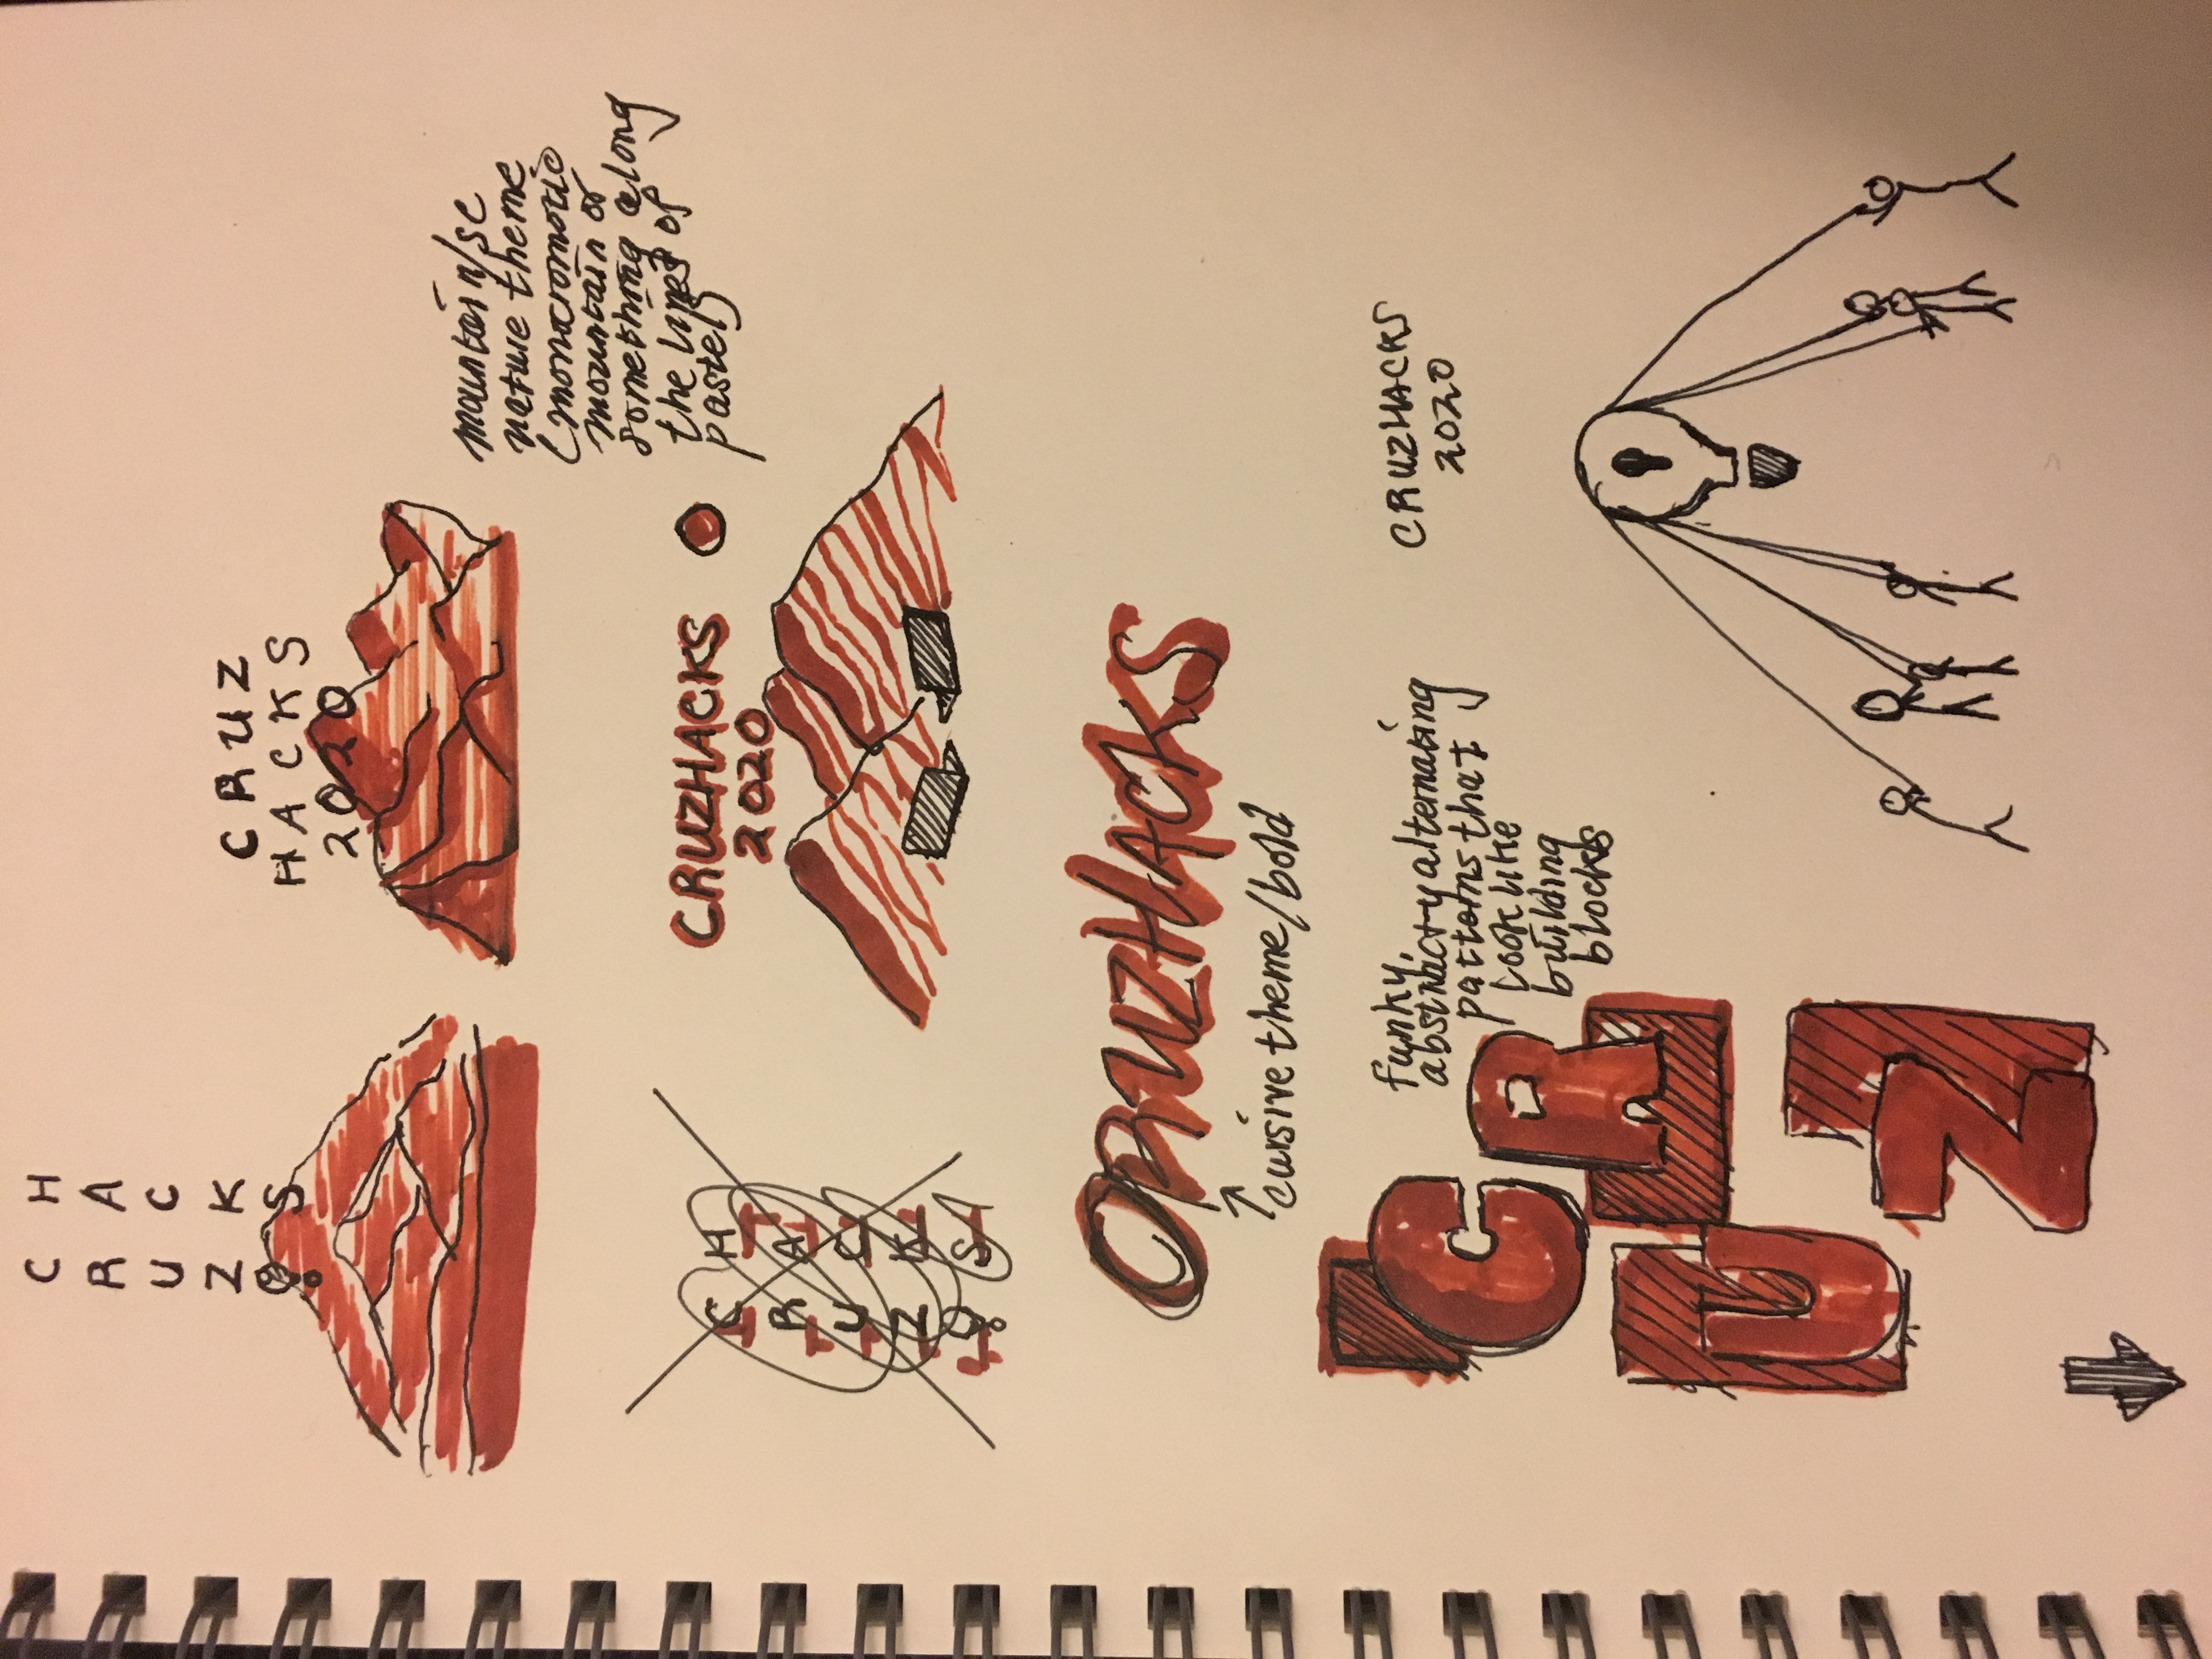 C H
R A
U C
Z K
S
CRUZ
HACKS
2020
mountain/sc
nature theme
(monocromotic
mountain or
something along
the lines of
pastel)
C H
R A
U C
Z K
S
CRUZHACKS
2020
CRUZHACKS
cursive theme/bold
C
R
U
Z
funky,
abstract-y alternating
patterns that
look like
building
blocks
CRUZHACKS
2020